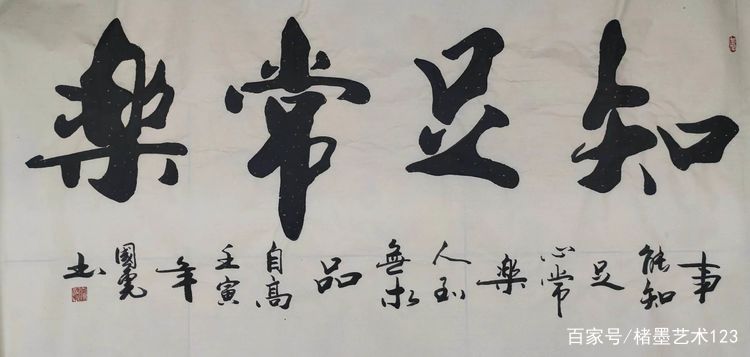 知足常樂
事能知足心常樂人到無求品自高壬寅年國亮书
百家号/楮墨艺术123